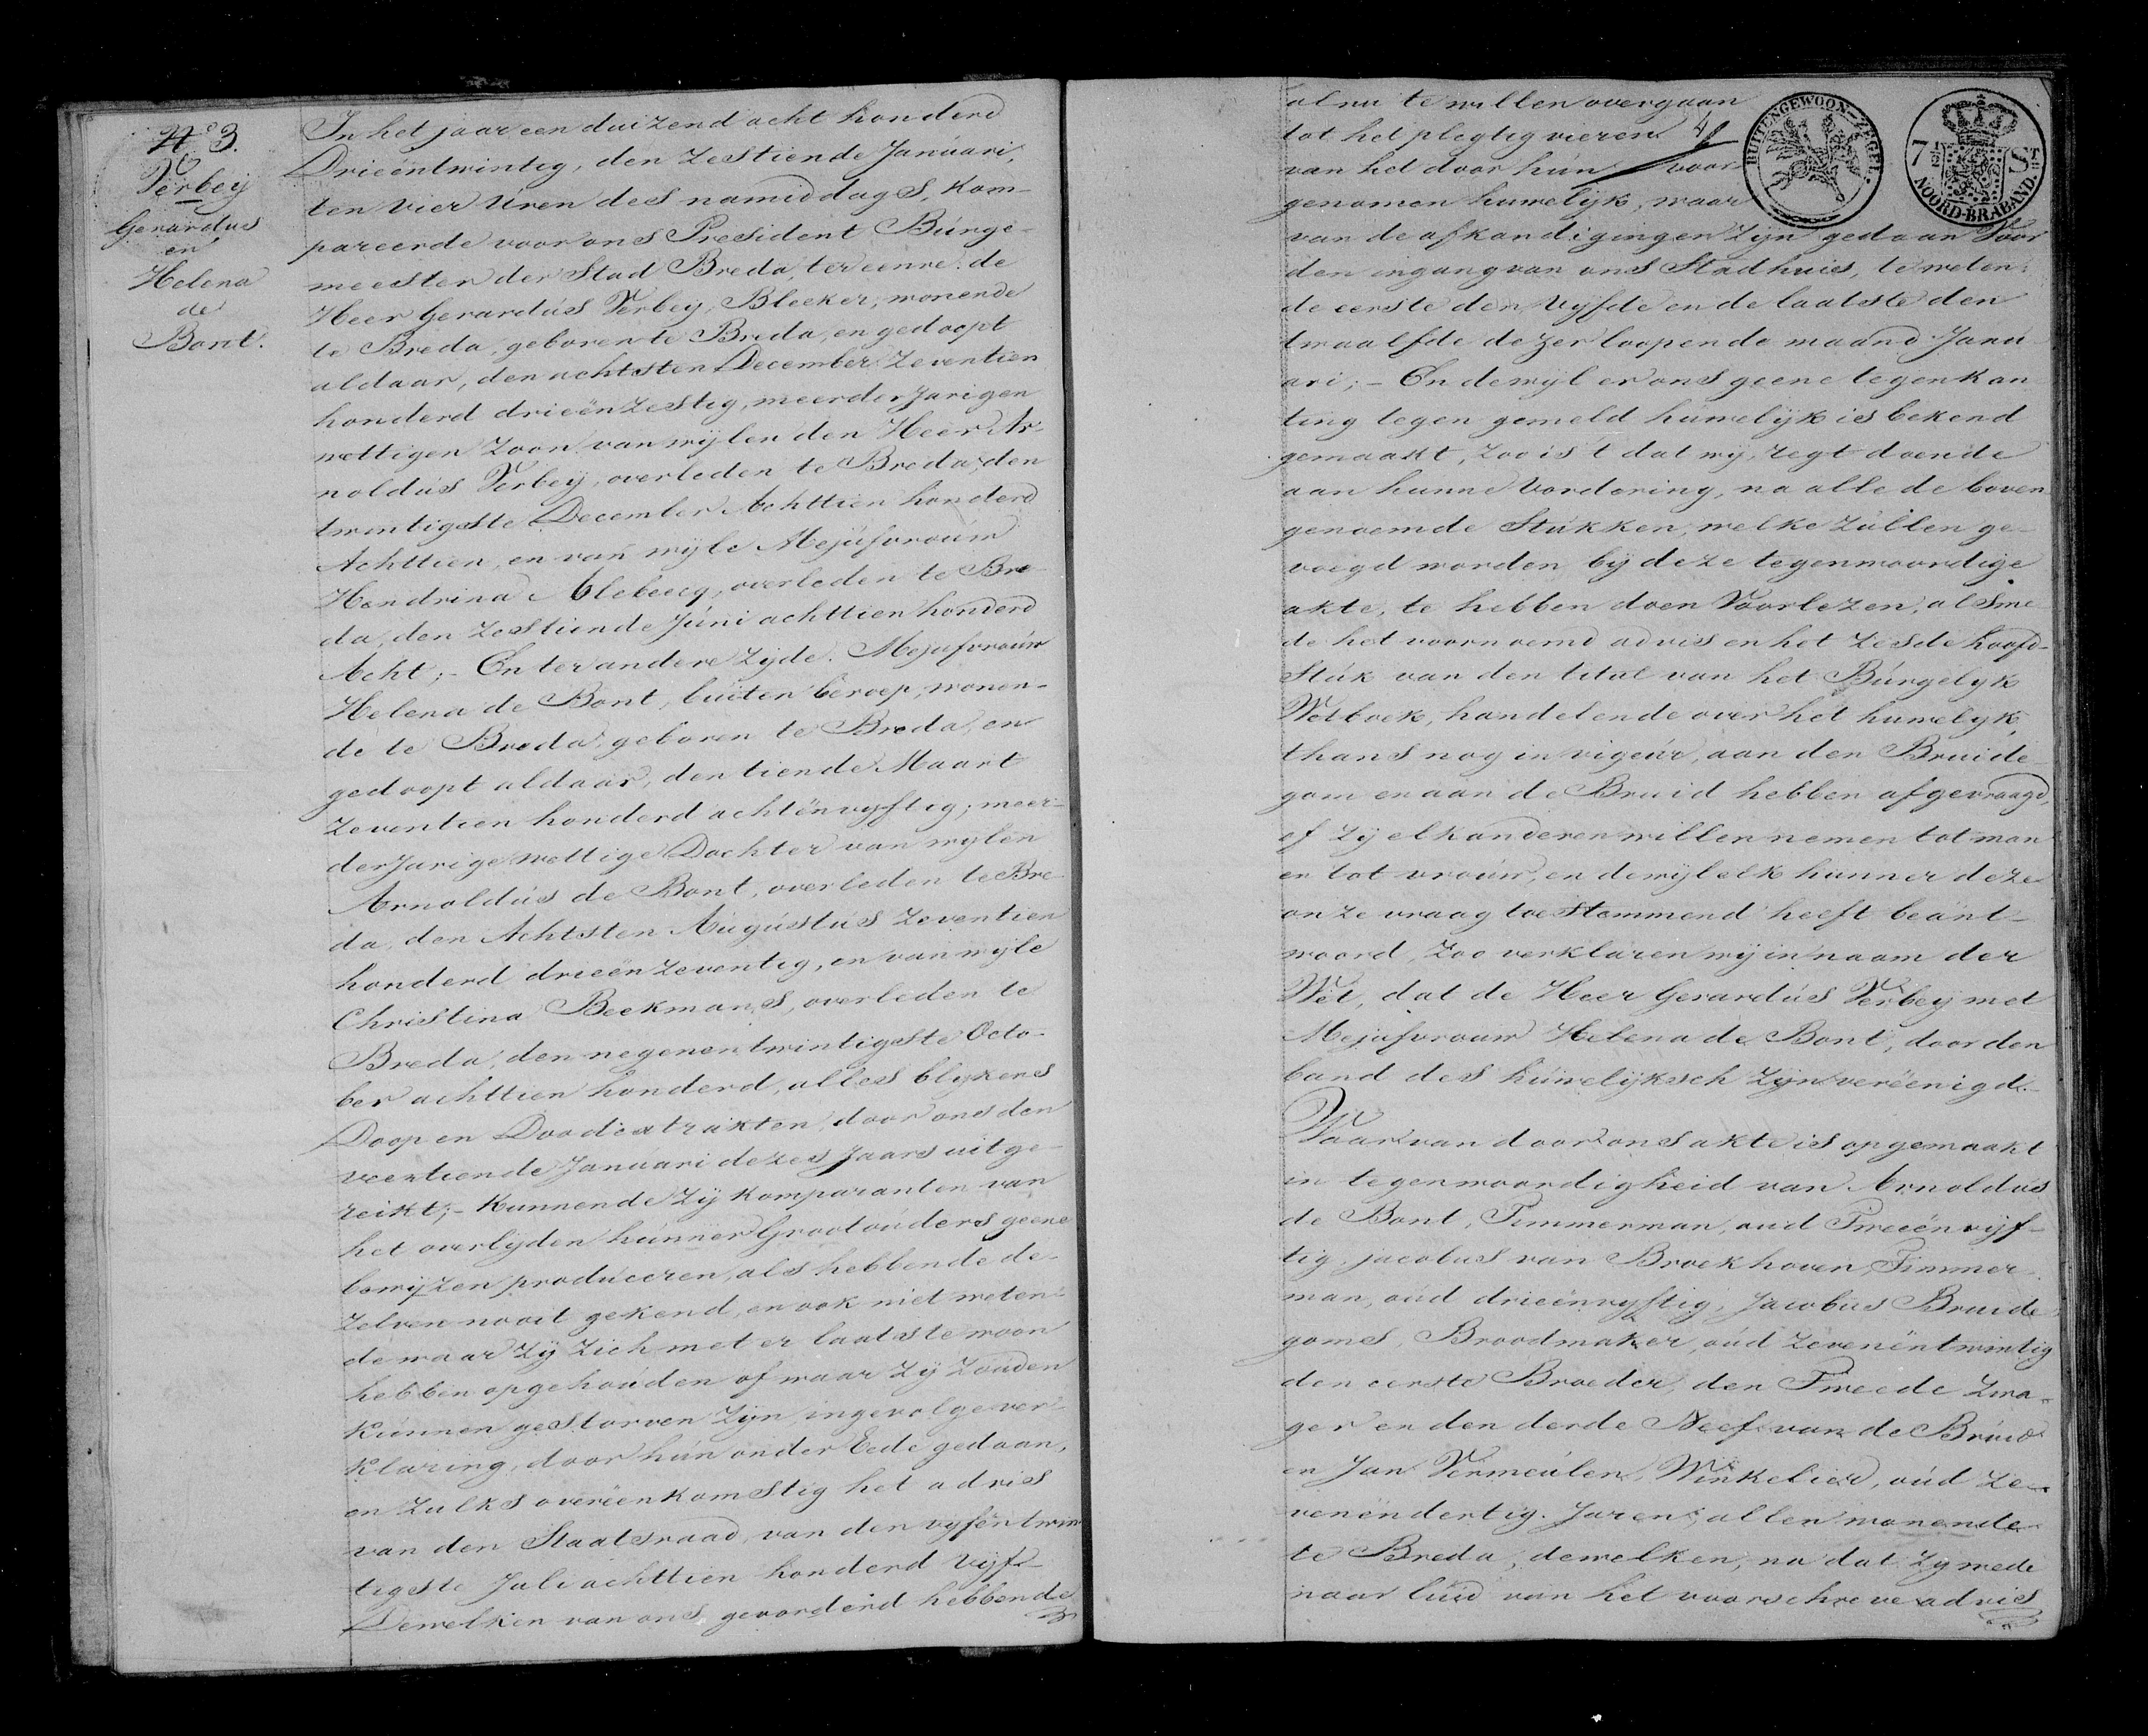 N.º 3.
Verbeÿ
Gerardus
en
Helena
de
Bont.
In het jaar een duizend acht honderd
Drieëntwintig, den Zestiende Januari,
ten vier Uren des namiddags, kom-
pareerde voor ons President Burge-
meester der Stad Breda, ter eenre. de
Heer Gerardus Verbey, Bleeker, wonende
te Breda, geboren te Breda, en gedoopt
aldaar, den achtsten December Zeventien
honderd drieënzestig, meerderjarigen
wettigen Zoon van wijlen den Heer Ar-
noldus Verbeÿ, overleden te Breda, den
twintigste December Achttien honderd
Achttien, en van wijle Mejufvrouw
Hendrina overleden te Bre-
da, den Zestiende Juni achttien honderd
Acht;- En ter andere zijde. Mejufvrouw
Helena de Bont, buiten beroep, wonen-
de te Breda, geboren te Breda, en
gedoopt aldaar, den tiende Maart
Zeventien honderd achtënvyftig; meer-
derjarige wettige Dochter van wylen
Arnoldus de Bont, overleden te Bre-
da, den Achtsten Augustus Zeventien
honderd drieënzeventig, en van wijle
Christina Beekmans, overleden te
Breda, den negenentwintigste Octo-
ber achttien honderd, alles blykens
Doop en Doodextrakten, door ons den
veertiende Januari dezes Jaars uitge-
reikt;- Kunnende Zij komparanten van
het overlijden hunner Grootouders geene
bewijzen produceren, als hebbende de-
zelven nooit gekend, en ook niet weten-
de waar zij zich met er laatste woon
hebben opgehouden of waar Zij Zouden
kunnen gestorven Zijn, ingevolge ver-
klaring, door hun onder Eede gedaan,
en Zulks overëenkomstig het advies
van den Staatsraad, van den vyfëntwin
tigste Juli achttien honderd Vijf-
Dewelken van ons gevorderd hebbende
al nu te willen overgaan
tot het plegtig vieren
van het door hun voor
genomen huwelijk, waar
van de afkondigingen Zijn gedaan Voor
den ingang van ons Stadhuis, te weten:
de eerste den Vyfde en de laatste den
twaalfde dezer loopende maand Janu
ari;- En dewijl er ons geene tegenkan
ting tegen gemeld huwelijk is bekend
gemaakt, Zoo is 't dat wij, regt doende
aan hunne Vordering, na alle de boven
genoemde Stukken, welke Zullen ge-
voegd worden bij deze tegenwoordige
akte, te hebben doen Voorlezen, alsme
de het voornoemd advis en het Zesde hoofd-
Stuk van den titul van het Burgelyk
Wetboek, handelende over het huwelyk,
thans nog in vigeur, aan den Bruide
gom en aan de Bruid hebben afgevraagd,
of Zij elkanderen willen nemen tot man
en tot vrouw, en dewijl elk hunner deze
onze vraag toestemmend heeft beänt-
woord, Zoo verklaren wij in naam der
Wet, dat de Heer Gerardus Verbeÿ met
Mejufvrouw Helena de Bont, door den
band des huwelijksch Zijn verëenigd.
Waarvan door ons akte is opgemaakt
in tegenwoordigheid van Arnoldus
de Bont, Timmerman, oud Tweeënvijf-
tig, jacobus van Broekhoven, Timmer
man, oud drieënvyftig, Jacobus Bruide
goms, Broodmaker, oud Zevenëntwintig
den eerste Broeder, den Tweede Zwa-
ger en den derde Neef van de Bruid
en Jan Vermeulen, Winkelier, oud Ze-
venëndertig. Jaren; allen wonende
te Breda, dewelken, na dat Zy mede
naar luid van het voorschreve advies
BUITENGEWOON-ZEGEL.
7½ ST.
NOORD-BRABAND.